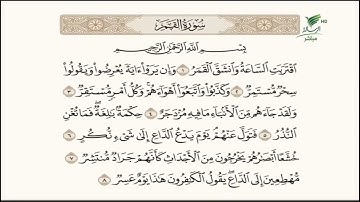 سُورَةُ القَمَرِ
بِسْمِ اللَّهِ الرَّحْمَٰنِ الرَّحِيمِ
اقْتَرَبَتِ السَّاعَةُ وَانشَقَّ الْقَمَرُ ١ وَإِن يَرَوْا آيَةً يُعْرِضُوا وَيَقُولُوا
سِحْرٌ مُّسْتَمِرٌّ ٢ وَكَذَّبُوا وَاتَّبَعُوا أَهْوَاءَهُمْ وَكُلُّ أَمْرٍ مُّسْتَقِرٌّ ٣
وَلَقَدْ جَاءَهُم مِّنَ الْأَنبَاءِ مَا فِيهِ مُزْدَجَرٌ ٤ حِكْمَةٌ بَالِغَةٌ فَمَا تُغْنِ
النُّذُرُ ٥ فَتَوَلَّ عَنْهُمْ يَوْمَ يَدْعُ الدَّاعِ إِلَىٰ شَيْءٍ نُّكُرٍ ٦
خُشَّعًا أَبْصَارُهُمْ يَخْرُجُونَ مِنَ الْأَجْدَاثِ كَأَنَّهُمْ جَرَادٌ مُّنتَشِرٌ ٧
مُّهْطِعِينَ إِلَى الدَّاعِ يَقُولُ الْكَافِرُونَ هَٰذَا يَوْمٌ عَسِرٌ ٨
HD
مباشر